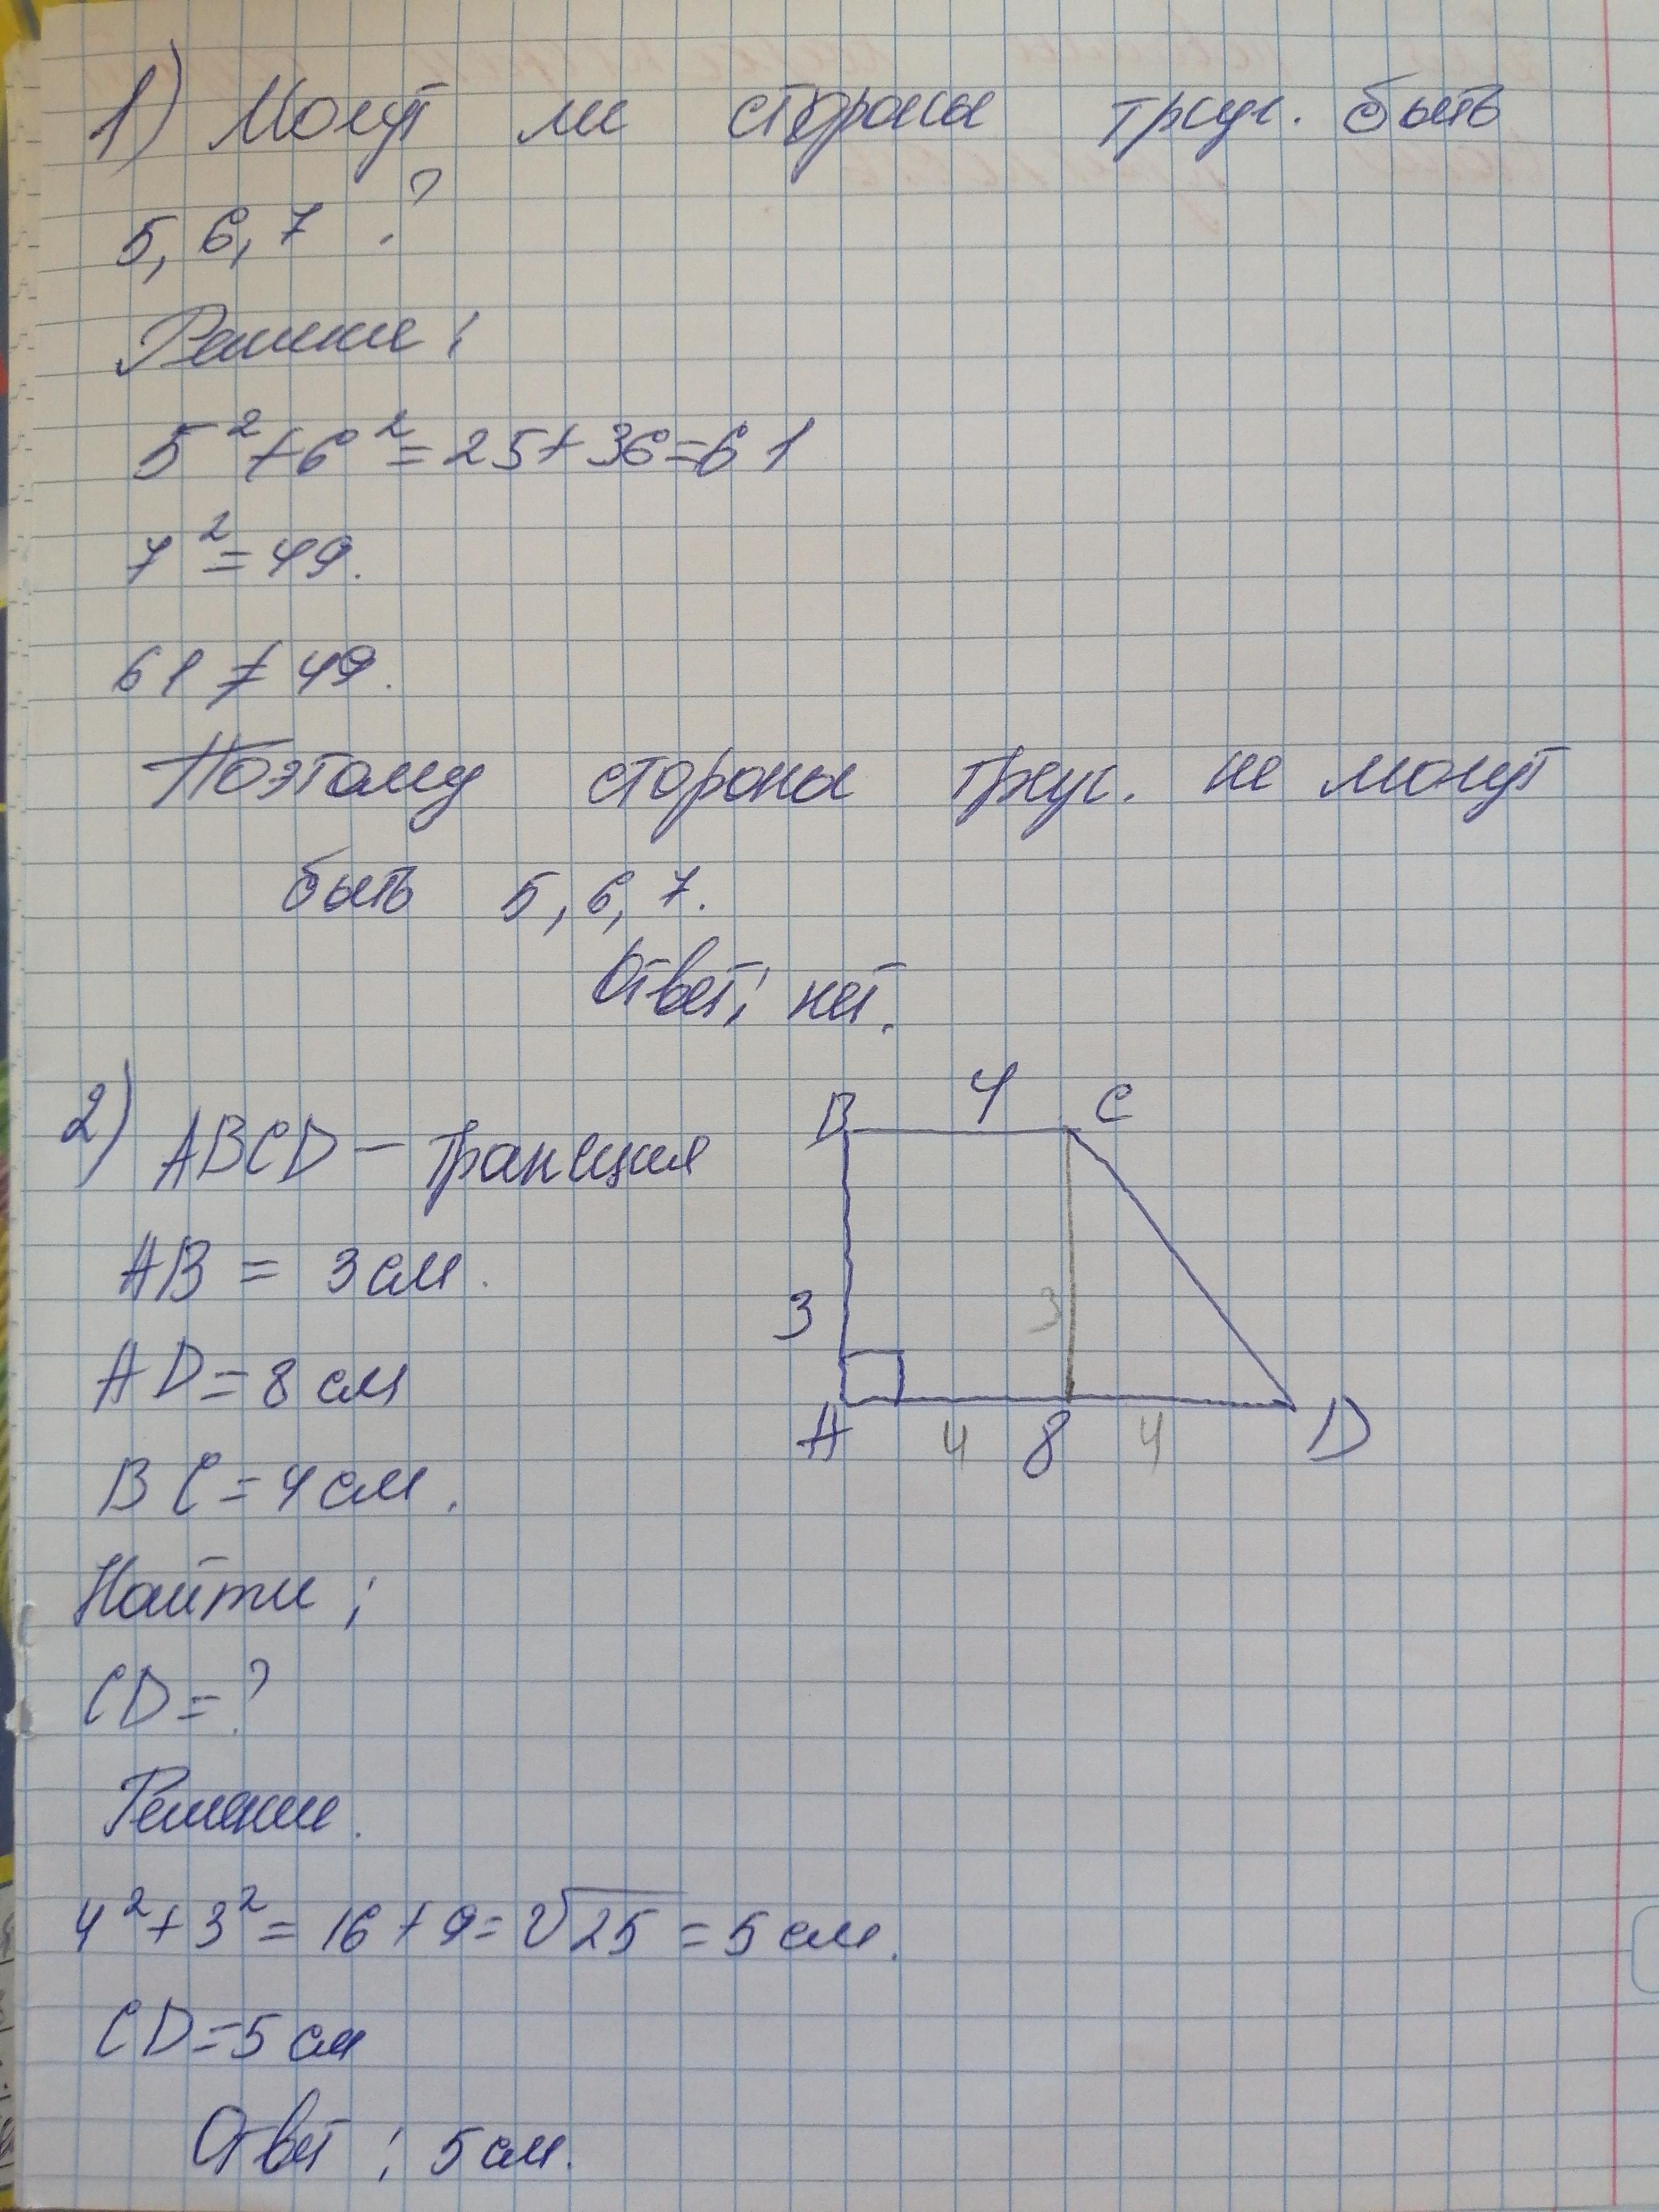 1) Могут ли стороны треуг. быть
5, 6, 7 ?
Решение:
5²+6²=25+36=61
7²=49.
61≠49.
Поэтому стороны треуг. не могут
быть 5, 6, 7.
Ответ: нет.
2) ABCD – трапеция
AB = 3 см.
AD=8 см
BC=4 см.
Найти:
CD=?
Решение.
4²+3²=16+9=√25=5 см.
CD=5 см
Ответ: 5 см.
B 4 C
3 3
A 4 8 4 D